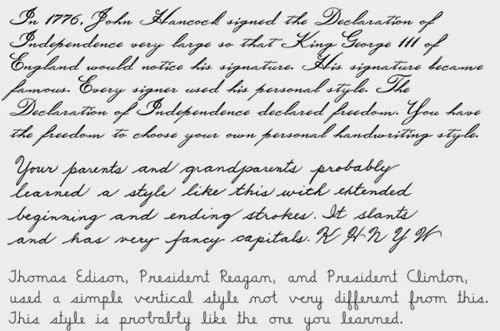 In 1776, John Hancock signed the Declaration of
Independence very large so that King George III of
England would notice his signature. His signature became
famous. Every signer used his personal style. The
Declaration of Independence declared freedom. You have
the freedom to choose your own personal handwriting style.
Your parents and grandparents probably
learned a style like this with extended
beginning and ending strokes. It slants
and has very fancy capitals. K H N Y W
Thomas Edison, President Reagan, and President Clinton,
used a simple vertical style not very different from this.
This style is probably like the one you learned.